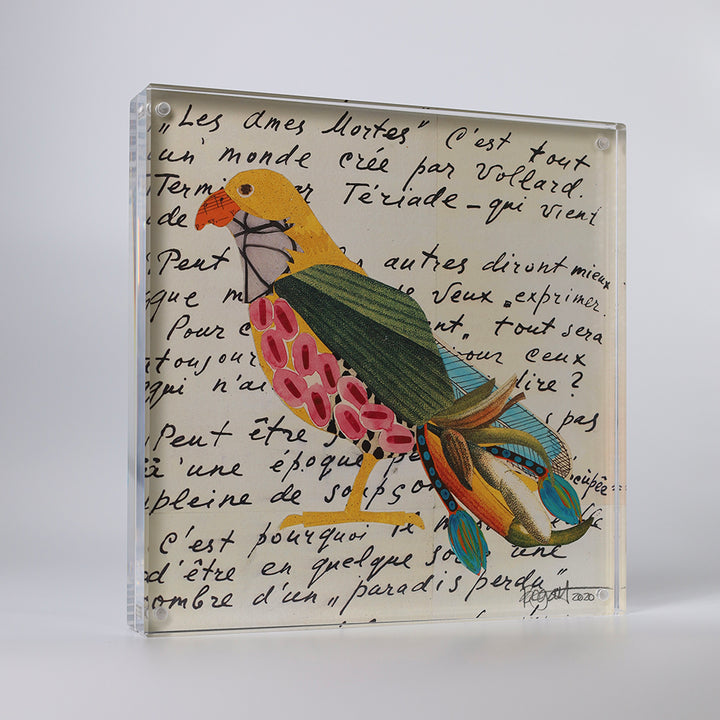 „Les Ames Mortes" C'est tout
un' monde crée par Vollard.
Termi er Tériade – qui vient
de
Peut les autres diront mieux
que m de veux „exprimer.
Pour c nt„ tout sera
toujour pour ceux
qui n'ai dire ?
Peut être s pas
à 'une époque pe cupée =
pleine de soupçon
C'est pourquoi le m
d'être en quelque so une
ombre d'un „paradis perdu"
2020